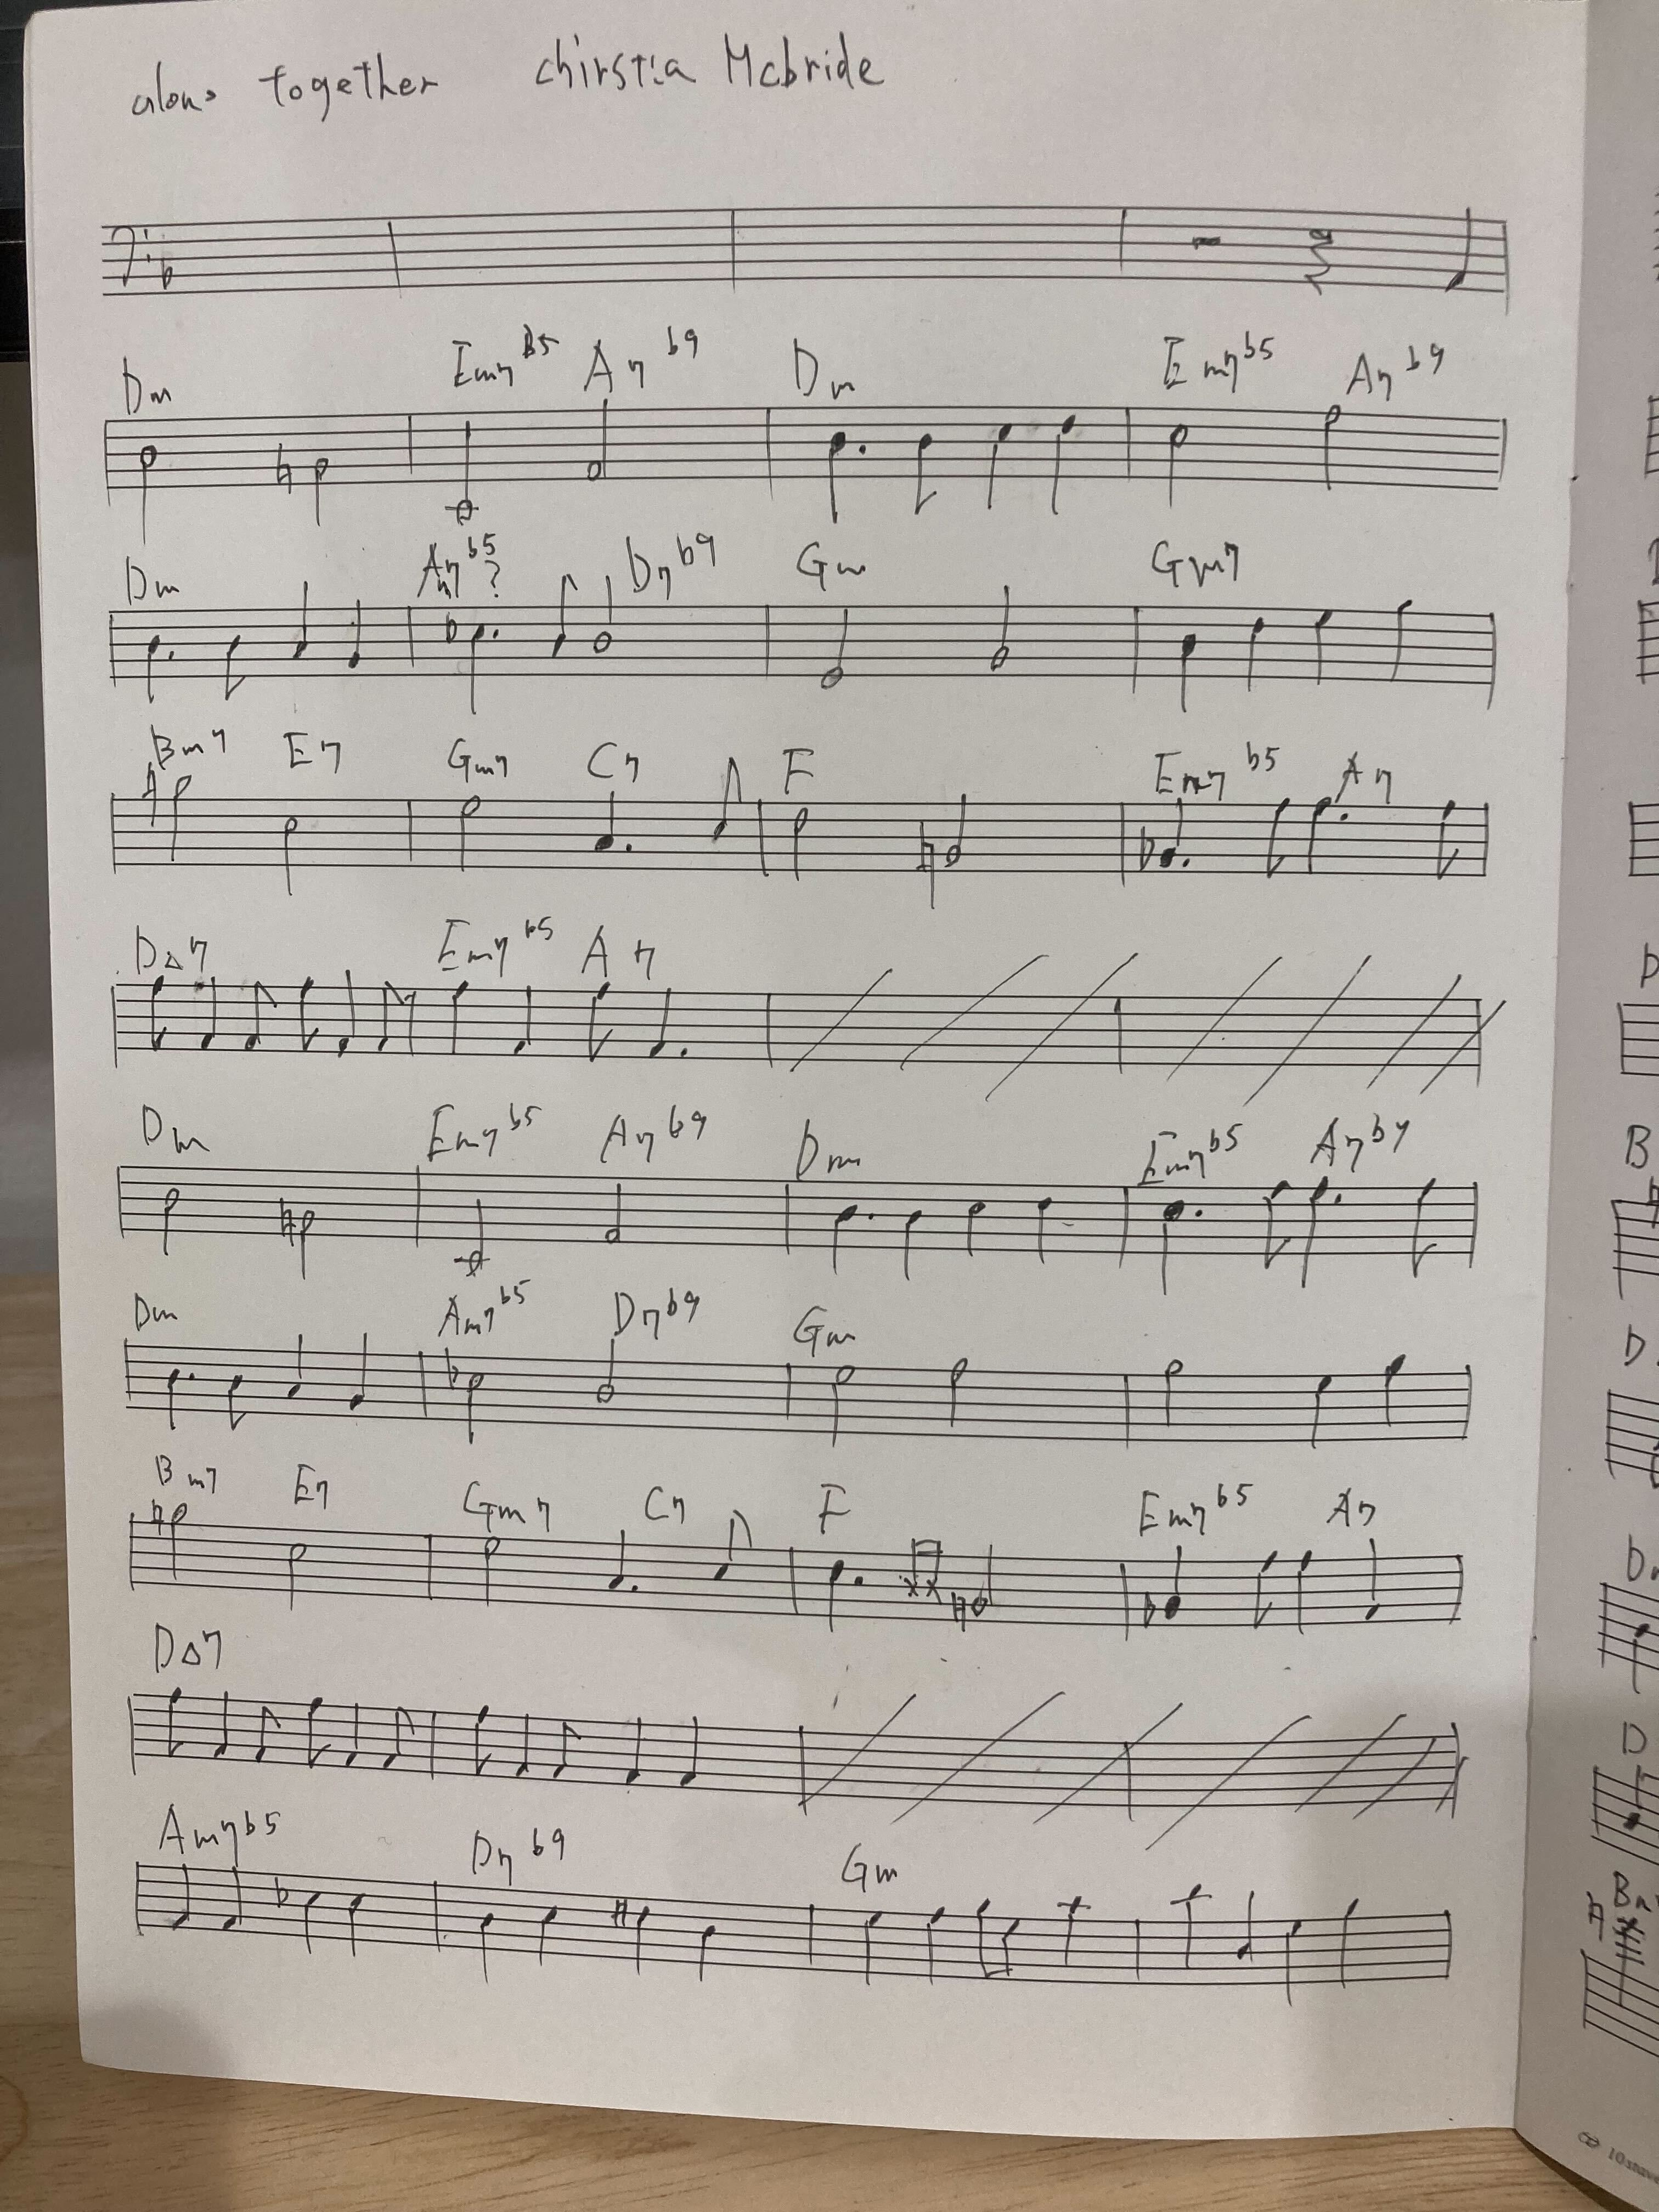 alone together chirstia Mcbride
Dm Em7 b5 A7 b9 Dm Em7 b5 A7 b9
Dm Am7 b5 ? D7 b9 Gm Gm7
Bm7 E7 Gm7 C7 F Em7 b5 A7
D△7 Em7 b5 A7
Dm Em7 b5 A7 b9 Dm Em7 b5 A7 b9
Dm Am7 b5 D7 b9 Gm
Bm7 E7 Gm7 C7 F Em7 b5 A7
D△7
Am7 b5 D7 b9 Gm